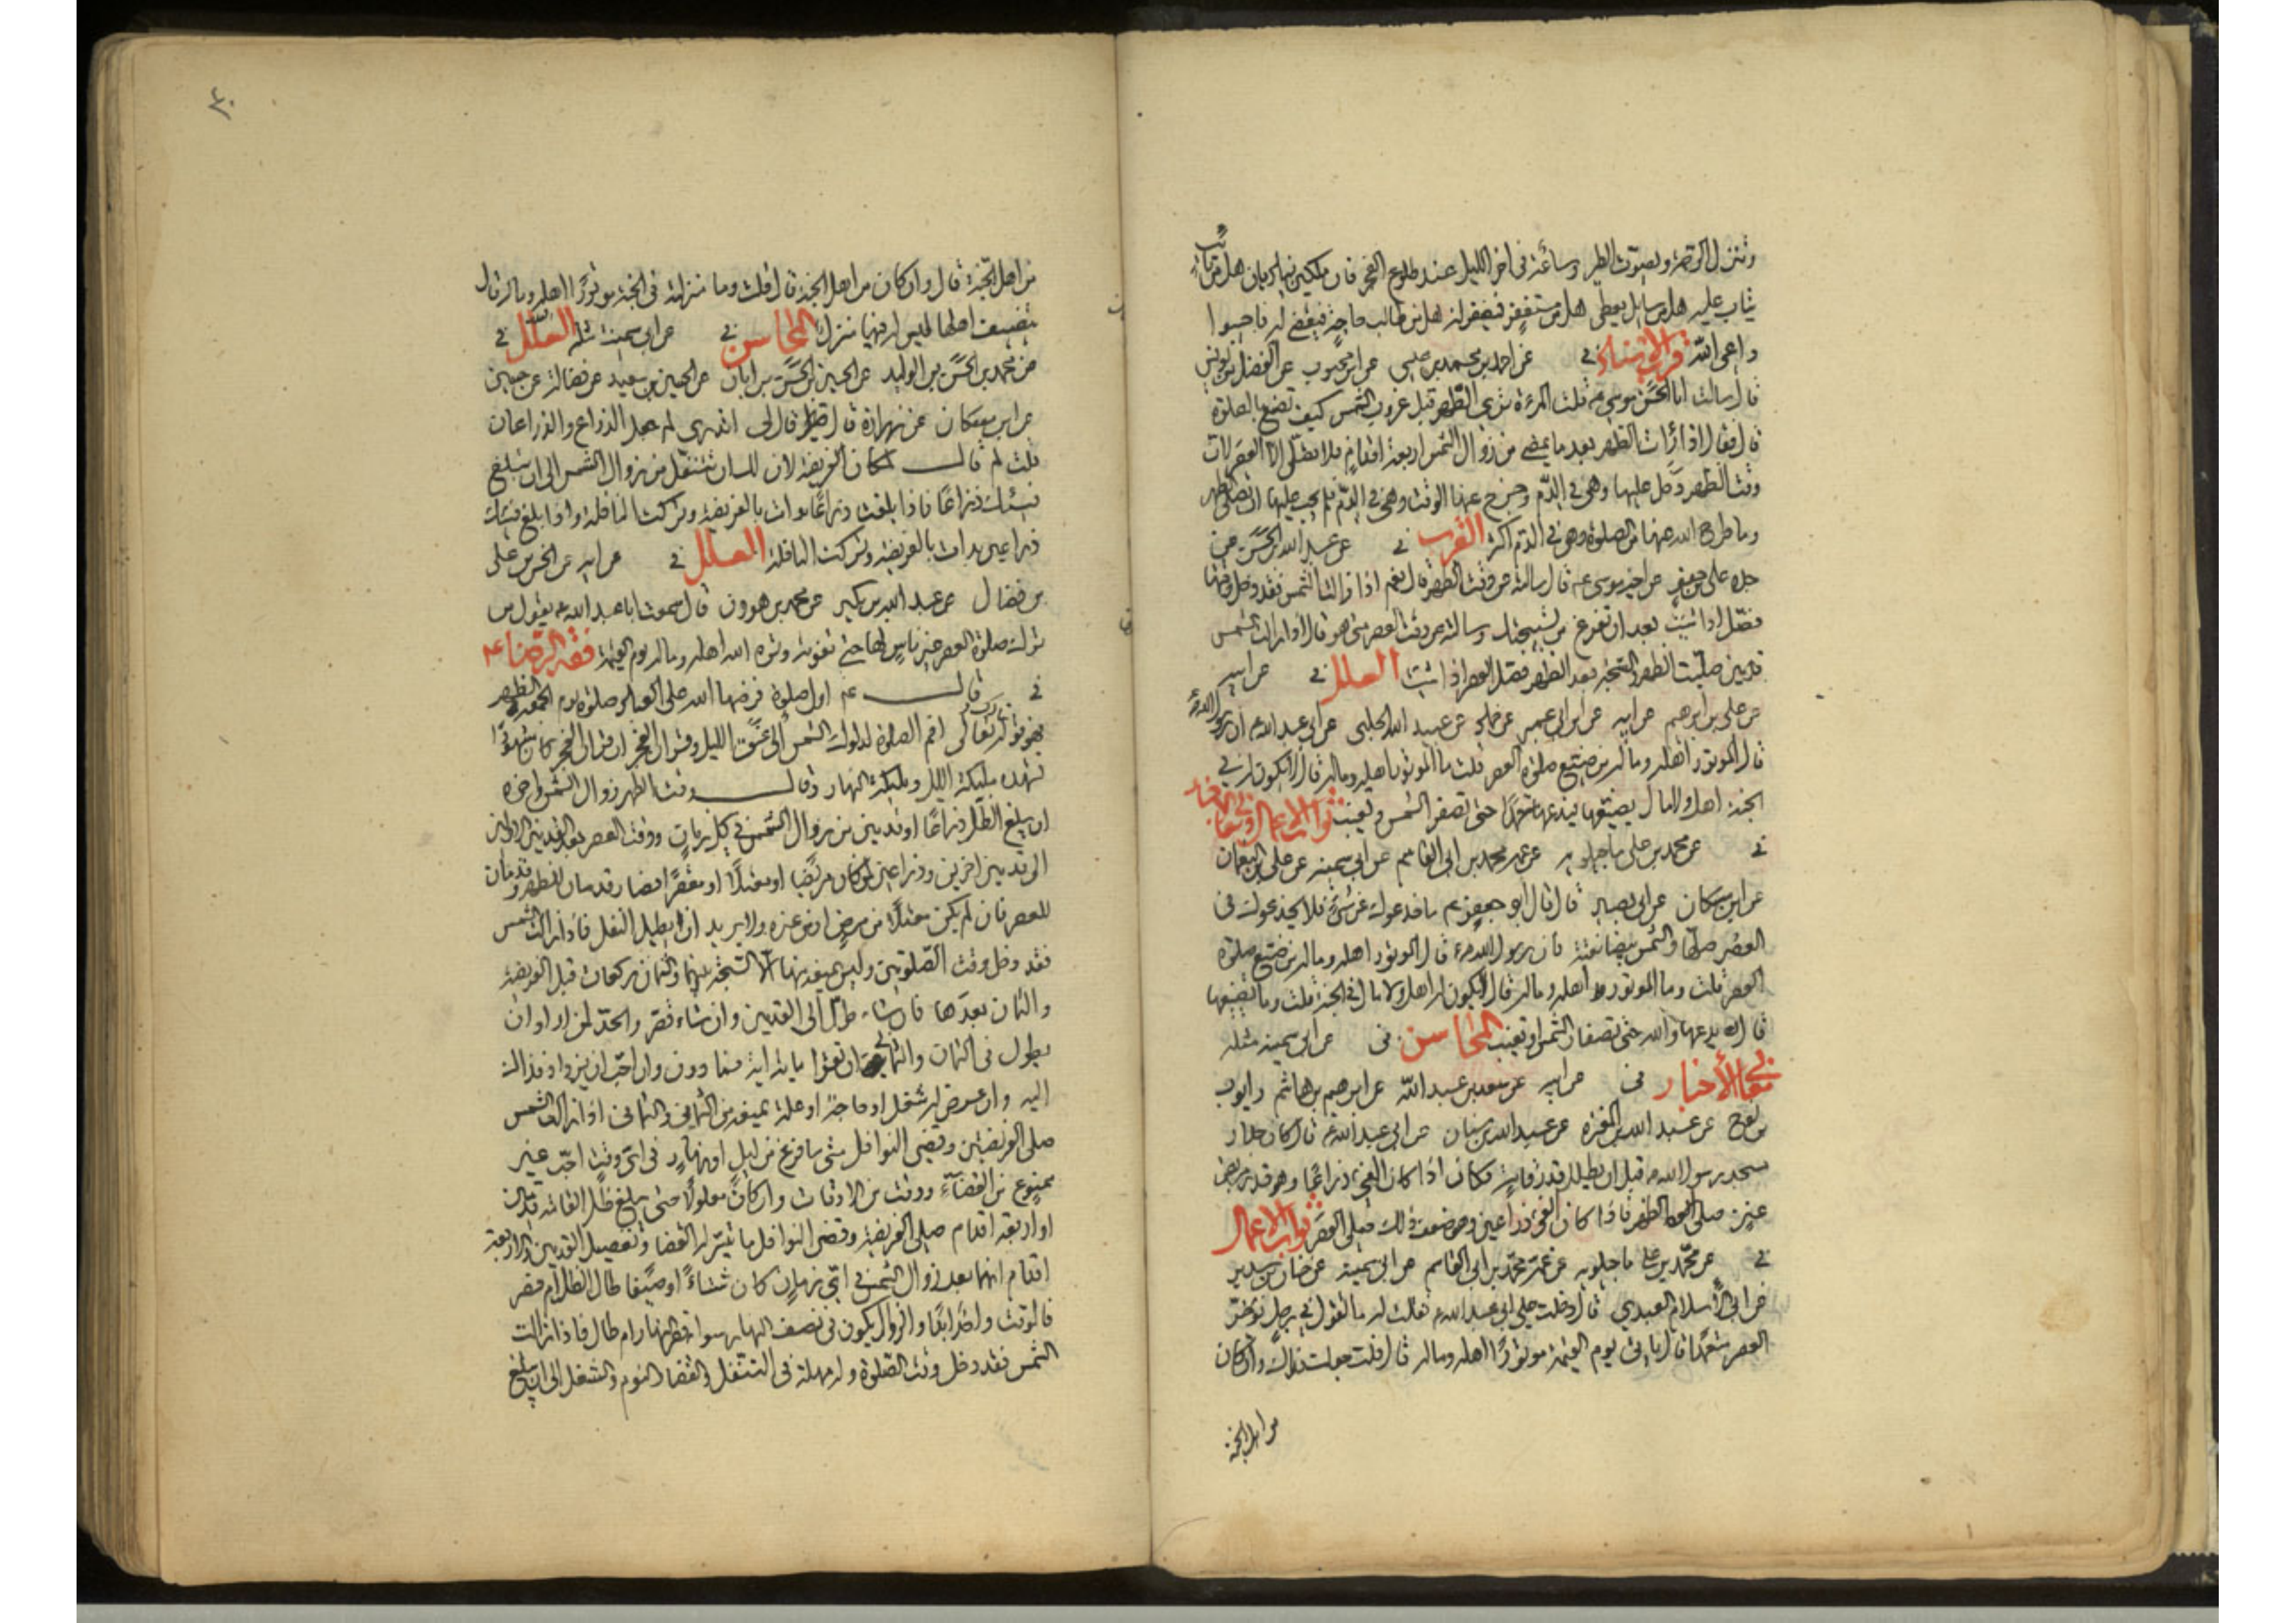 وتنزل الرحمة ويصوت الطير وساعة في اخر الليل عند طلوع الفجر فان ملكين يناديان هل من تائب
يتاب عليه هل من سايل يعطى هل من مستغفر فيغفر له هل من طالب حاجة فيقضى له فاجيبوا
داعي الله قرب الاسناد في عن احمد بن محمد بن عيسى عن ابن محبوب عن الفضل بن يونس
قال سالت ابا الحسن موسى ع قلت المرءة ترى الطهر قبل غروب الشمس كيف تصنع بالصلوة
قال فقال اذا رات الطهر بعد ما يمضي من زوال الشمس اربعة اقدام فلا تصلى الا العصر لان
وقت الظهر دخل عليها وهي في الدم وخرج عنها الوقت وهي في الدم فلم يجب عليها ان تصلى الظهر
وما طرح الله عنها من الصلوة وهي في الدم اكثر القرب في عن عبد الله بن الحسن عن
جده علي بن جعفر عن اخيه موسى ع قال سالته عن وقت الظهر قال نعم اذا زالت الشمس فقد دخل وقتها
فصل اذا شئت بعد ان تفرغ من سبحتك وسالته عن وقت العصر متى هو قال اذا زالت الشمس
قدمين صليت الظهر والسبحة بعد الظهر فصل العصر اذا شئت العلل في عن ابيه
عن علي بن ابرهيم عن ابيه عن ابن ابي عمير عن حماد عن عبيد الله الحلبي عن ابي عبد الله ع ان رسول الله ص
قال الموتور اهله وماله من ضيع صلوة العصر قلت ما الموتور اهله وماله قال لا يكون له في
الجنة اهل ولا مال يضيعها فيدعها متعمدا حتى تصفر الشمس وتغيب ثواب الاعمال ومعاني الاخبار
في عن محمد بن علي ماجيلويه عن عمه محمد بن ابي القاسم عن ابي سمينة عن علي بن النعمان
عن ابن مسكان عن ابي بصير قال قال ابو جعفر ع ما خدعوك عن شيء فلا يخدعوك في
العصر صلها والشمس بيضا نقية فان رسول الله ص قال الموتور اهله وماله من ضيع صلوة
العصر قلت وما الموتور اهله وماله قال لا يكون له اهل ولا مال في الجنة قلت وما تضييعها
قال يدعها والله حتى تصفار الشمس او تغيب المحاسن في عن ابي سمينة مثله
معاني الأخبار في عن ابيه عن سعد بن عبد الله عن ابرهيم بن هاشم وايوب
بن نوح عن عبد الله بن المغيرة عن عبد الله بن سنان عن ابي عبد الله ع قال كان جدار
مسجد رسول الله ص قبل ان يظلل قدر قامة فكان اذا كان الفيء ذراعا وهو قدر مربض
عنز صلى الظهر فاذا كان الفيء ذراعين وهو ضعف ذلك صلى العصر ثواب الاعمال
في عن محمد بن علي ماجيلويه عن عمه محمد بن ابي القاسم عن ابي سمينة عن حنان بن سدير
عن ابي سلام العبدي قال دخلت على ابي عبد الله ع فقلت له ما تقول في رجل يؤخر
العصر متعمدا قال ياتي يوم القيمة موتورا اهله وماله قال قلت جعلت فداك وان كان
من اهل الجنة
٤٠
من اهل الجنة قال وان كان من اهل الجنة قال قلت وما منزلته في الجنة موتورا اهله وماله قال
يتضيف اهلها ليس له فيها منزل المحاسن في عن ابي سمينة مثله العلل في
عن محمد بن الحسن بن الوليد عن الحسين بن الحسن بن ابان عن الحسين بن سعيد عن فضالة عن حسين
عن ابن مسكان عن زرارة قال قال لي اتدري لم جعل الذراع والذراعان
قلت لم قال لمكان الفريضة لان لك ان تتنفل من زوال الشمس الى ان يبلغ
فيئك ذراعا فاذا بلغت ذراعا بدات بالفريضة وتركت النافلة واذا بلغ فيئك
ذراعين بدات بالفريضة وتركت النافلة العلل في عن ابيه عن الحسن بن علي
بن فضال عن عبد الله بن بكير عن محمد بن هرون قال سمعت ابا عبد الله ع يقول من
ترك صلوة العصر غير ناس لها حتى تفوته وتره الله اهله وماله يوم القيمة فقه الرضا ع
في قال ع اول صلوة فرضها الله على العباد صلوة يوم الجمعة الظهر
فهو قوله تبارك وتعالى اقم الصلوة لدلوك الشمس الى غسق الليل وقران الفجر ان قران الفجر كان مشهودا
تشهده مليكة الليل ومليكة النهار وقال وقت الظهر زوال الشمس واخره
ان يبلغ الظل ذراعا او قدمين من زوال الشمس في كل زمان ووقت العصر بعد القدمين الاولين
الى قدمين اخرين وذراعين لمن كان مريضا او معتلا او مقصرا فصار قدمان للظهر وقدمان
للعصر فان لم يكن معتلا من مرض او من غيره ولا يريد ان يطيل النفل فاذا زالت الشمس
فقد دخل وقت الصلوتين وليس يمنعه منها الا السبحة بينهما والثمان ركعات قبل الفريضة
والثمان بعدها فان شاء طول الى القدمين وان شاء قصر والحد لمن اراد ان
يطول في الثمان والثماني ان تقرا ماية اية فما دون وان احب ان يزداد فذاك
اليه وان عرض له شغل او حاجة او علة تمنعه من الثماني والثماني اذا زالت الشمس
صلى الفريضتين وقضى النوافل متى ما فرغ من ليل او نهار في اي وقت احب غير
ممنوع من القضاء ووقت من الاوقات وان كان معلولا حتى يبلغ ظل القامة قدمين
او اربعة اقدام صلى الفريضة وقضى النوافل ما تيسر له القضا وتفصيل القدمين والاربعة
اقدام انهما بعد زوال الشمس في اي زمان كان شتاءا او صيفا طال الظل ام قصر
فالوقت واحد ابدا والزوال يكون في نصف النهار سوا قصر النهار ام طال فاذا زالت
الشمس فقد دخل وقت الصلوة وله مهلة في التنفل والقضا والنوم والشغل الى ان يبلغ